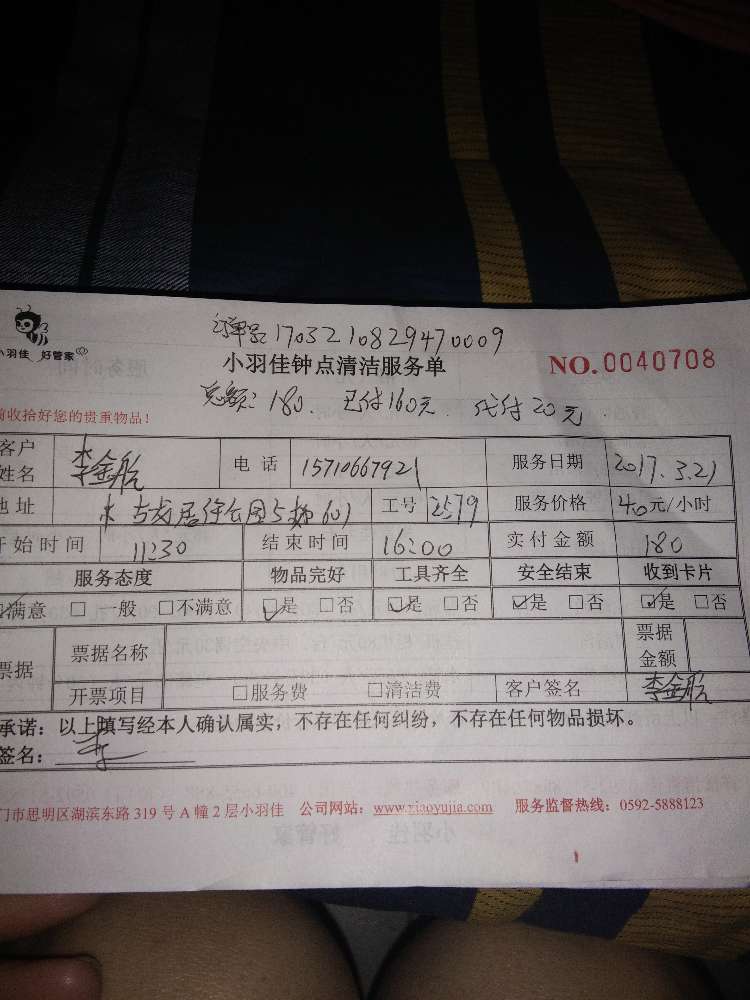 订单号:1703210829470009
小羽佳 好管家
小羽佳钟点清洁服务单 NO.0040708
总额:180. 已付160元. 代付20元.
前收拾好您的贵重物品!
客户姓名 李金航 电话 15710667921 服务日期 2017.3.21
地址 古龙居住公园5梯601 工号 2579 服务价格 40元/小时
开始时间 11:30 结束时间 16:00 实付金额 180
服务态度 物品完好 工具齐全 安全结束 收到卡片
☑满意 □ 一般 □不满意 ☑是 □否 ☑是 □否 ☑是 □否 ☑是 □否
票据 票据名称 票据金额
开票项目 □服务费 □清洁费 客户签名 李金航
承诺:以上填写经本人确认属实,不存在任何纠纷,不存在任何物品损坏。
签名:
门市思明区湖滨东路 319 号 A 幢 2 层小羽佳 公司网站:www.xiaoyujia.com 服务监督热线:0592-5888123